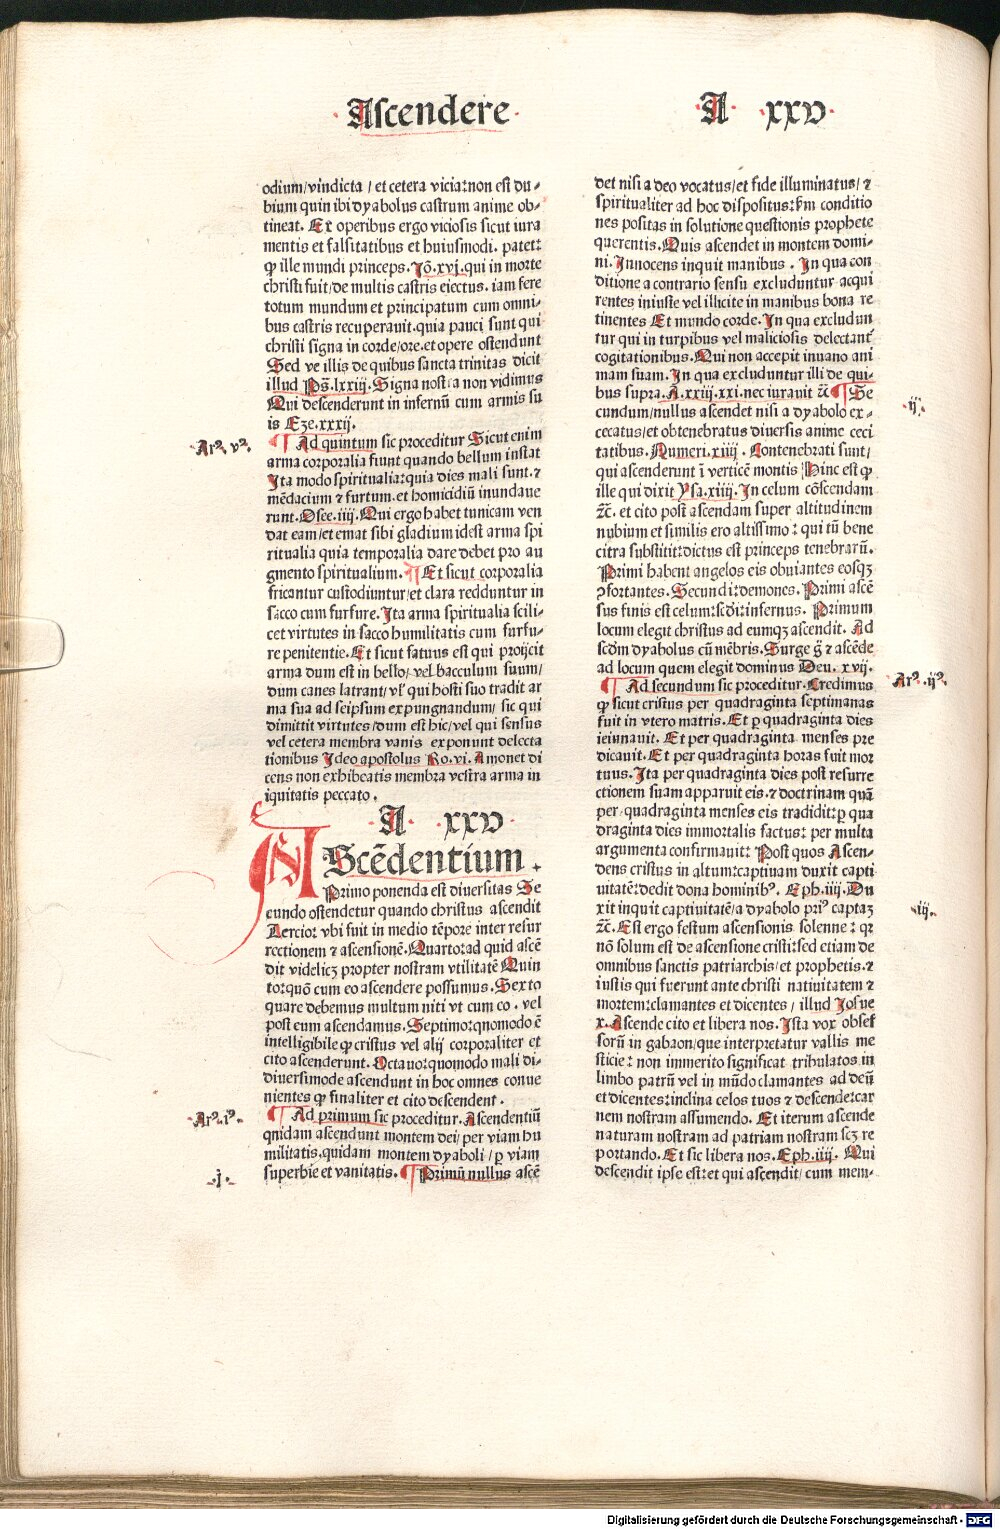 Ascendere
A xxv
odium/vindicta / et cetera vicia:non est du-
bium quin ibi dyabolus castrum anime ob-
tineat. Ex operibus ergo viciosis sicut iura
mentis et falsitatibus et huiusmodi. patet:
ꝙ ille mundi princeps. Jō.xvj.qui in morte
christi fuit/de multis castris eiectus. iam fere
totum mundum et principatum cum omni-
bus castris recuperauit.quia pauci sunt qui
christi signa in corde/ore.et opere ostendunt
Sed ve illis de quibus sancta trinitas dicit
illud Ps̄.lxxiij. Signa nostra non vidimus
Qui descenderunt in infernū cum armis su
is Eze.xxxij.
Arꝰ. vꝰ.
¶ Ad quintum sic proceditur Sicut enim
arma corporalia fiunt quando bellum instat
Ita modo spiritualia:quia dies mali sunt.⁊
mēdacium ⁊ furtum.et homicidiū inundaue
runt. Osee.iiij. Qui ergo habet tunicam ven
dat eam/et emat sibi gladium idest arma spi
ritualia quia temporalia dare debet pro au
gmento spiritualium. ¶ Et sicut corporalia
fricantur custodiuntur/et clara redduntur in
sacco cum furfure. Ita arma spiritualia scili-
cet virtutes in sacco humilitatis cum furfu-
re penitentie. Et sicut fatuus est qui proijcit
arma dum est in bello/vel bacculum suum/
dum canes latrant/vl' qui hosti suo tradit ar
ma sua ad seipsum expungnandum/ sic qui
dimittit virtutes/dum est hic/vel qui sensus
vel cetera membra vanis exponunt delecta
tionibus Ideo apostolus Ro.vi. Amonet di
cens non exhibeatis membra vestra arma in
iquitatis peccato.
A xxv
AScēdentium.
Primo ponenda est diuersitas Se
cundo ostendetur quando christus ascendit
Tercio: vbi fuit in medio tēpore inter resur
rectionem ⁊ ascensionē. Quarto:ad quid ascē
dit videlicꝫ propter nostram vtilitatē Quin
to:quō cum eo ascendere possumus. Sexto
quare debemus multum niti vt cum eo. vel
post eum ascendamus. Septimo:qnomodo ē
intelligibile ꝙ cristus vel alij corporaliter et
cito ascenderunt. Octauo:quomodo mali di-
diuersimode ascendunt in hoc omnes conue
nientes ꝙ finaliter et cito descendent.
Arꝰ. iꝰ.
¶ Ad primum sic proceditur. Ascendentiū
quidam ascendunt montem dei/ per viam hu
militatis.quidam montem dyaboli/ ꝑ viam
j.
superbie et vanitatis. ¶ Primū nullus ascē
det nisi a deo vocatus/et fide illuminatus/ ⁊
spiritualiter ad hoc dispositus:ẜm conditio
nes positas in solutione questionis prophete
querentis. Quis ascendet in montem domi-
ni. Innocens inquit manibus. In qua con
ditione a contrario sensu excluduntur acqui
rentes iniuste vel illicite in manibus bona re
tinentes Et mundo corde. In qua excludun
tur qui in turpibus vel maliciosis delectant᷑
cogitationibus. Qui non accepit inuano ani
mam suam. In qua excluduntur illi de qui-
bus supra. A.xxiij.xxi.nec iurauit ⁊c̄ ¶ Se
ij.
cundum/nullus ascendet nisi a dyabolo ex-
cecatus/et obtenebratus diuersis anime ceci
tatibus. Numeri.xiiij. Contenebrati sunt/
qui ascenderunt ī verticē montis Hinc est ꝙ
ille qui dixit Ysa.xiiij. In celum cōscendam
⁊c̄. et cito post ascendam super altitudinem
nubium et similis ero altissimo: qui tū bene
citra substitit:dictus est princeps tenebrarū.
Primi habent angelos eis obuiantes eosqꝫ
ꝯfortantes. Secundi:demones. Primi ascē
sus finis est celum:scd̄i:infernus. Primum
locum elegit christus ad eumqꝫ ascendit. Ad
scd̄m dyabolus cū mēbris. Surge g̊ ⁊ ascēde
ad locum quem elegit dominus Deu. xvij.
Arꝰ. ijꝰ.
¶ Ad secundum sic proceditur. Credimus
ꝙ sicut cristus per quadraginta septimanas
fuit in vtero matris. Et ꝑ quadraginta dies
ieiunauit. Et per quadraginta menses pre
dicauit. Et per quadraginta horas fuit mor
tuus. Ita per quadraginta dies post resurre
ctionem suam apparuit eis. ⁊ doctrinam quā
per quadraginta menses eis tradidit:ꝑ qua
draginta dies immortalis factus: per multa
argumenta confirmauit: Post quos Ascen-
dens cristus in altum:captiuam duxit capti
uitatē:dedit dona hominibꝰ. Eph.iiij. Du
iij.
xit inquit captiuitatē/a dyabolo priꝰ captaꝫ
⁊c̄. Est ergo festum ascensionis solenne: qꝛ
nō solum est de ascensione cristi:sed etiam de
omnibus sanctis patriarchis/et prophetis.⁊
iustis qui fuerunt ante christi natiuitatem ⁊
mortem:clamantes et dicentes / illud Josue
x. Ascende cito et libera nos. Ista vox obses
sorū in gabaon/que interpretatur vallis me
sticie: non immerito significat tribulatos in
limbo patrū vel in mūdo clamantes ad deū
et dicentes:inclina celos tuos ⁊ descende:car
nem nostram assumendo. Et iterum ascende
naturam nostram ad patriam nostram scꝫ re
portando. Et sic libera nos. Eph.iiij. Qui
descendit ipse est:et qui ascendit/ cum mem-
Digitalisierung gefördert durch die Deutsche Forschungsgemeinschaft - DFG